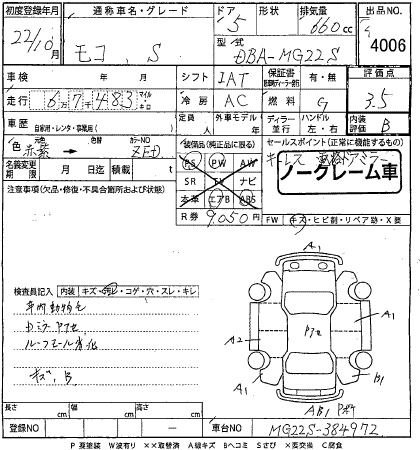 初度登録年月 通称車名・グレード ドア 形状 排気量 出品NO.
22/10月 モコ、S 5 660cc 4006
型式 DBA-MG22S
車検 年 月 シフト IAT 保証書 有・無 評価点
走行 67483 マイル km 冷房 AC 燃料 G 3.5
車歴 自家用・レンタ・事業用( ) 定員 人 外車モデル 年 ディーラー・並行 ハンドル 左・右 内装評価 B
色 元色 赤紫 → カラーNO ZED 装備品(純正品に限る) セールスポイント(正常に機能するもの)
PS PW AW キーレス 電格ドアミラー
名義変更期限 月 日迄 積載 t SR TV ナビ ノークレーム車
注意事項(欠品・修復・不具合箇所および状態) 本革 エアB ABS
R券 9,050円 FW キズ・ヒビ割・リペア跡・X要
A1
検査員記入 内装 キズ・汚レ・コゲ・穴・スレ・キレ
車内動物毛
ドミラーPアセ
ルーフモール劣化
キズ、B
Pアセ
A2
A1
A1
B1
AB1 Pボケ
長さ cm 幅 cm 高さ cm
登録NO ー 車台NO MG22S-384972
P 要塗装 W波有り ××取替済 A線キズ Bヘコミ Sさび ×要交換 C腐食